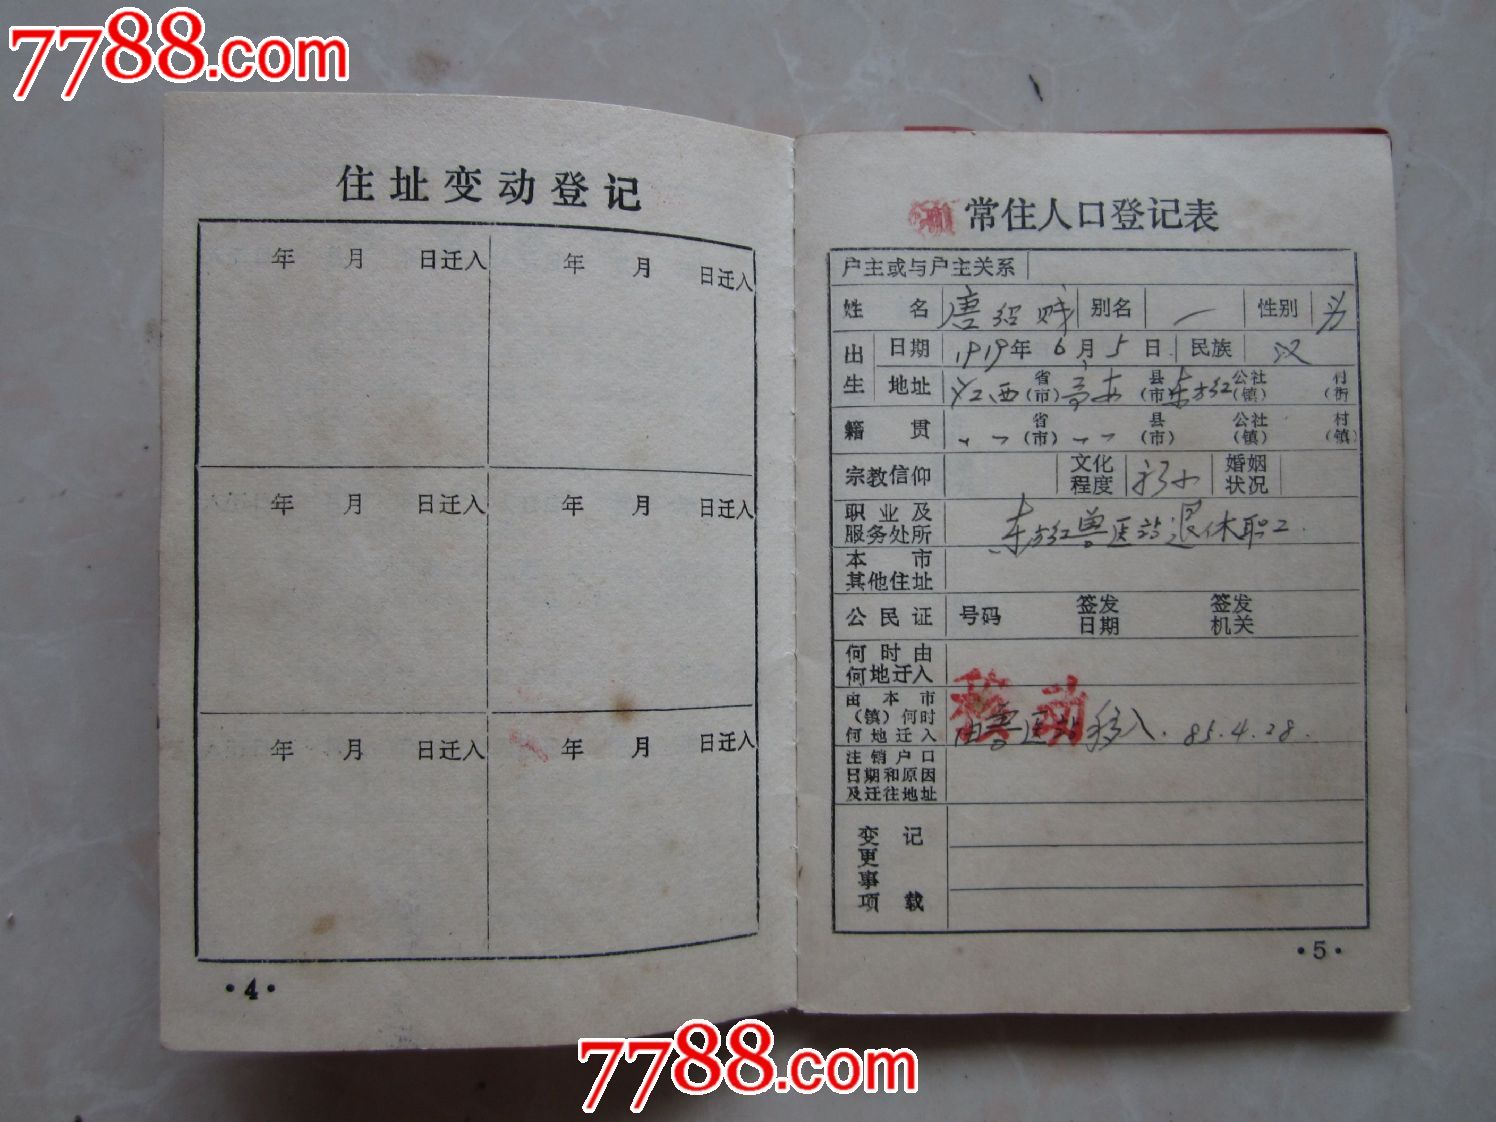 7788.com
住址变动登记
年 月 日迁入 年 月 日迁入
年 月 日迁入 年 月 日迁入
年 月 日迁入 年 月 日迁入
·4·
常住人口登记表
户主或与户主关系
姓名 唐绍 别名 一 性别 男
出生 日期 1919年6月5日 民族 汉
地址 江西 省(市) 高安 县(市) 东方红 公社(镇) 村(街
籍贯 〃 〃 省(市) 〃 〃 县(市) 公社(镇) 村(镇)
宗教信仰 文化程度 初小 婚姻状况
职业及服务处所 东方红兽医站退休职工.
本市其他住址
公民证 号码 签发日期 签发机关
何时由何地迁入
移动
由本市(镇)何时何地迁入 由兽医站移入. 85.4.28.
注销户口日期和原因及迁往地址
变更事项记载
·5·
7788.com